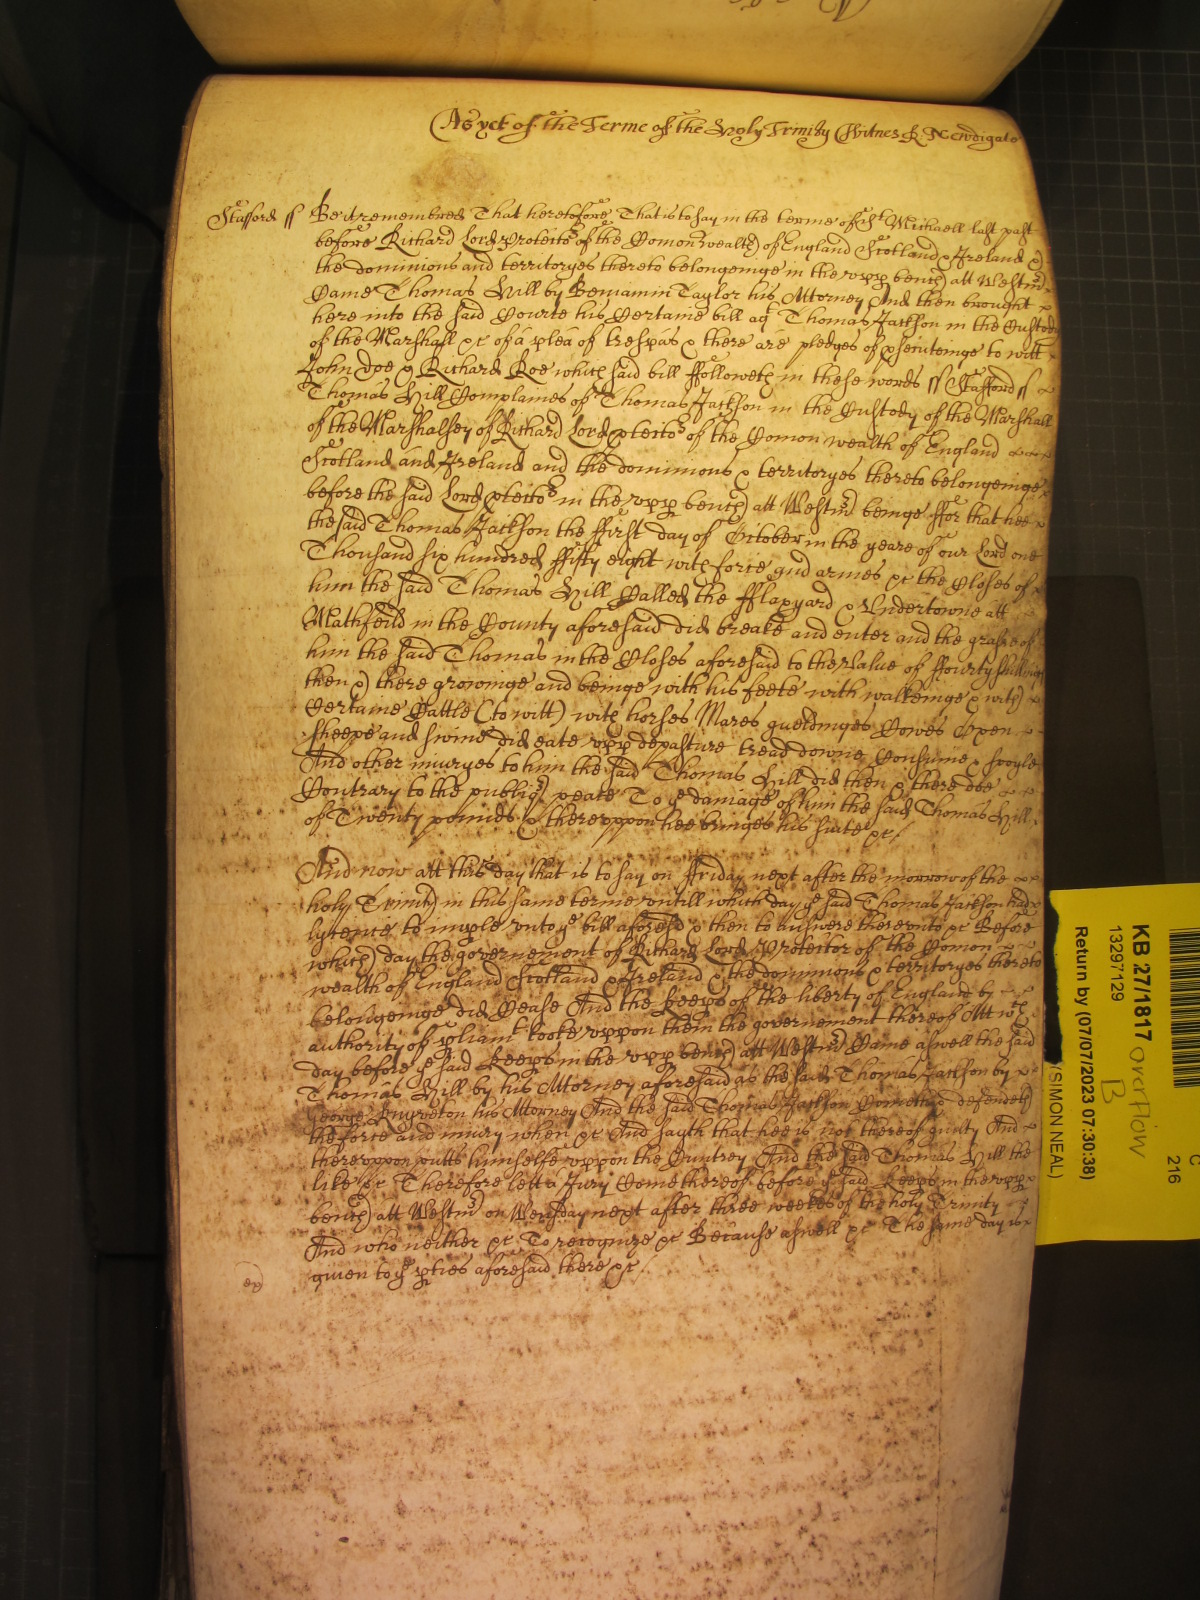 As yet of the Terme of the Holy Trinity Witnes R Newdigate
Stafford ss Be it remembred That heretofore That is to say in the terme of St Michaell last past
before Richard Lord Protector of the Comonwealth of England Scotland & Ireland &
the dominions and territoryes thereto belongeinge in the upp bench att Westmr
Came Thomas Hill by Beniamin Taylor his Attorney And then brought
here into the said Courte his Certaine bill agt Thomas Jackson in the Custody
of the Marshall &c of a plea of trespas & there are pledges of psecuteinge to witt
John Doe & Richard Roe which said bill ffolloweth in these words ss Stafford ss
Thomas Hill Complaines of Thomas Jackson in the Custody of the Marshall
of the Marshalsey of Richard Lord ptector of the Comon wealth of England
Scotland and Ireland and the dominions & territoryes thereto belongeinge
before the said Lord ptector in the upp bench att Westmr beinge ffor that hee
the said Thomas Jackson the ffirst day of October in the yeare of our Lord one
Thousand six hundred ffifty eight with force and armes &c the Closes of
him the said Thomas Hill Called the fflaxyard & Undertowne att
Mathfeild in the County aforesaid did breake and enter and the grasse of
him the said Thomas in the Closes aforesaid to the Value of ffourty shillings
then & there groweinge and beinge with his feete with walkeinge & with
Certaine Cattle (to witt) with horses Mares gueldinges Cowes Oxen
sheepe and swine did eate upp depasture tread downe Consume & spoyle
And other iniuryes to him the said Thomas Hill did then & there doe
Contrary to the publiq peace To ye damage of him the said Thomas Hill
of Twenty pounds & thereuppon hee bringes his suite &c
And now att this day that is to say on Friday next after the morrow of the
holy Trinity in this same terme untill which day ye said Thomas Jackson had
lycence to imple unto ye bill aforesd & then to Answere thereunto &c Before
which day the governement of Richard Lord Protector of the Comon
wealth of England Scotland & Ireland & the dominions & territoryes thereto
belongeinge did Cease And the Keeps of the liberty of England by
authority of pliamt tooke uppon them the governement thereof Att wch
day before ye said Keeps in the upp bench att Westmr Came aswell the said
Thomas Hill by his Attorney aforesaid as the said Thomas Jackson by
George his Attorney And the said Thomas Jackson Cometh & defendeth
the force and iniury when &c And sayth that hee is not thereof guilty And
thereuppon putts himselfe uppon the Cuntrey And the said Thomas Hill the
like &c Therefore lett a Jury Come thereof before ye said Keeps in the upp
bench att Westmr on next after three weekes of the holy Trinity
And who neither &c To recognize &c Because aswell &c The same day is
given to ye pties aforesaid there &c
KB 27/1817 overflow
B
13297129
Return by (07/07/2023 07:30:38)
(SIMON NEAL)
C
216